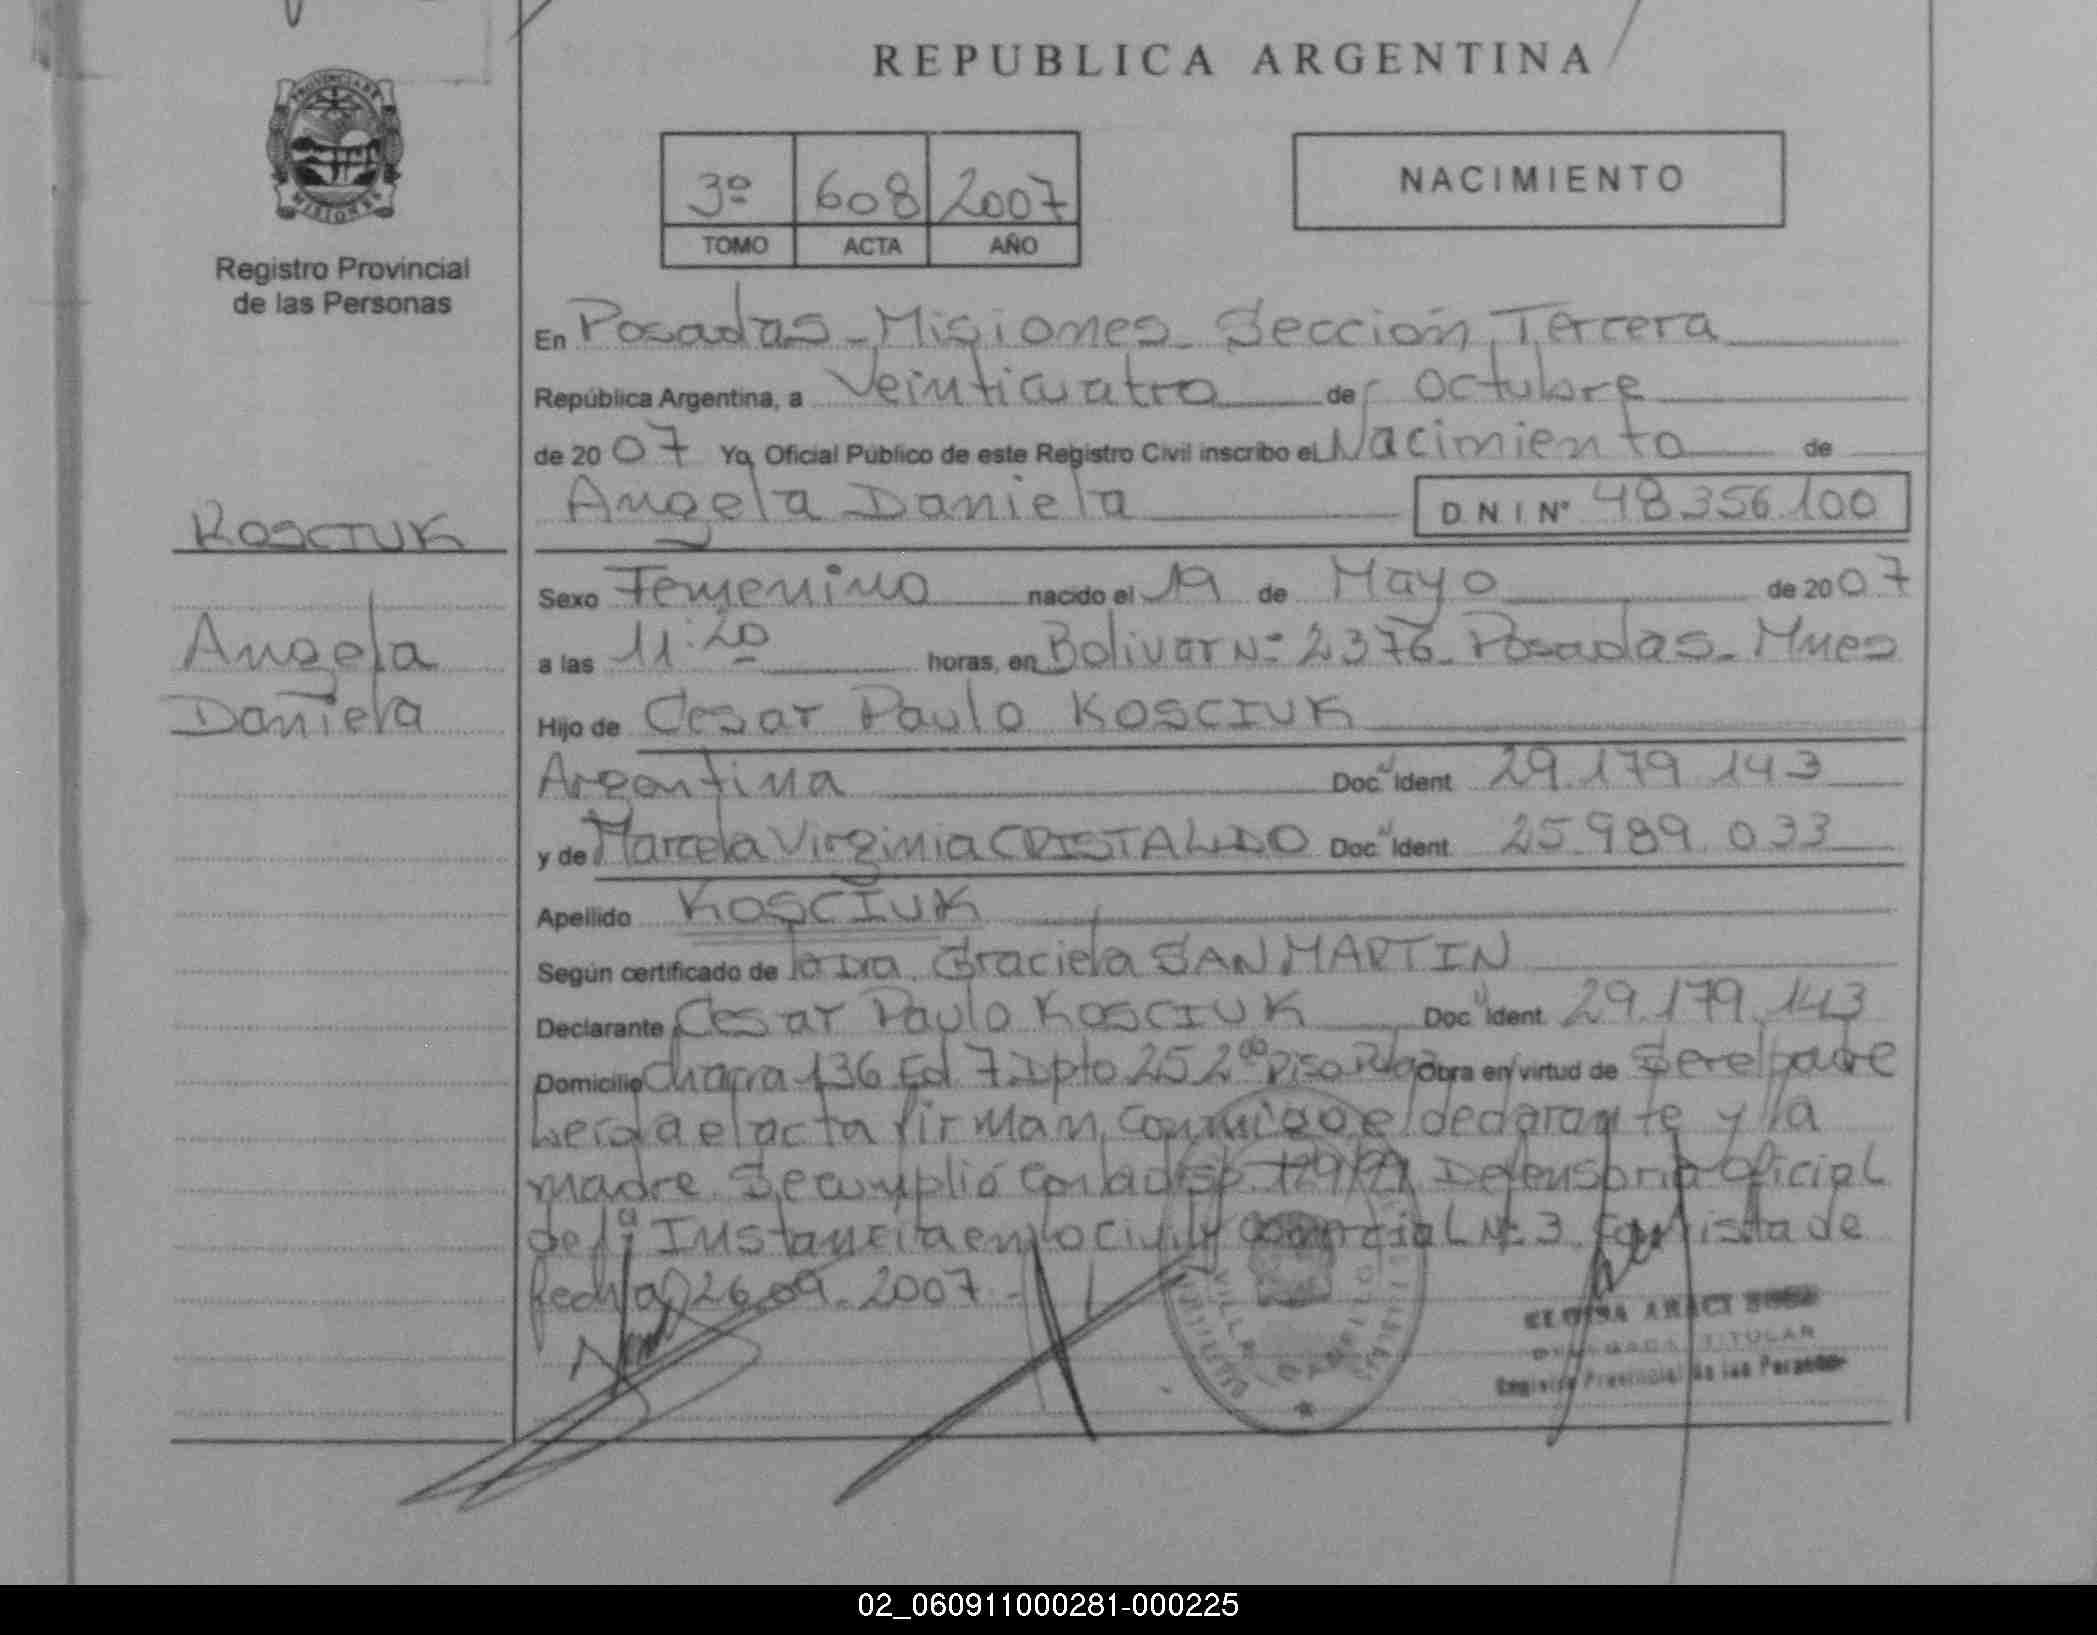 REPUBLICA ARGENTINA
PROVINCIA DE
MISIONES
Registro Provincial
de las Personas
3º 608 2007
TOMO ACTA AÑO
NACIMIENTO
En Posadas - Misiones - Sección Tercera
República Argentina, a Veinticuatro de Octubre
de 2007 Yo, Oficial Público de este Registro Civil inscribo el Nacimiento de
Angela Daniela DNI Nº 48.356.100
KOSCIUK
Angela
Daniela
Sexo Femenino nacido el 19 de Mayo de 2007
a las 11:20 horas, en Bolivar Nº 2376 - Posadas - Mnes
Hijo de Cesar Paulo KOSCIUK
Argentina Doc. Ident. 29.179.143
y de Marcela Virginia CRISTALDO Doc. Ident. 25.989.033
Apellido KOSCIUK
Según certificado de la Dra. Graciela SAN MARTIN
Declarante Cesar Paulo KOSCIUK Doc. Ident. 29.179.143
Domicilio Chacra 136 Ed 7 Dpto 25 2do Piso Obra en virtud de Ser el padre
Leida el acta firman conmigo el declarante y la
madre. Se cumplió con la disp. Defensoria Oficial
de 1ª Instancia en lo Civil y Comercial Nº 3 vista de
fecha 26.09.2007 -
VILLA CABELLO
TITULAR
Registro Provincial de las Personas
02_060911000281-000225